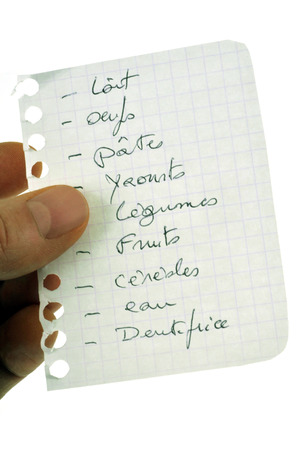 - Lait
- Oeufs
- pâtes
- Yaourts
Légumes
- Fruits
- céréales
- eau
- Dentifrice